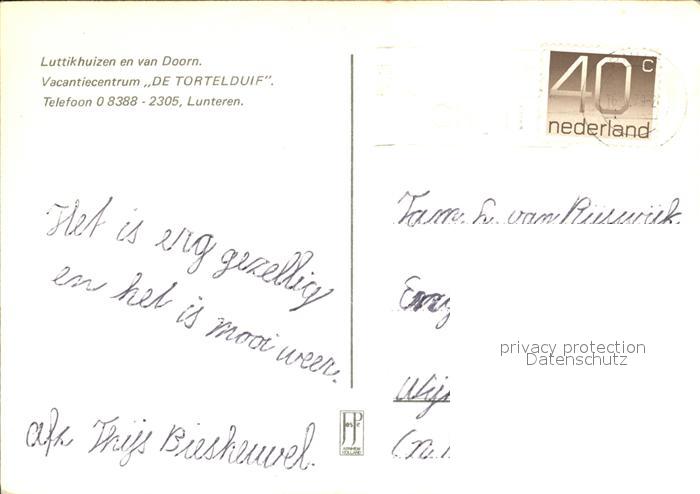 Luttikhuizen en van Doorn.
Vacantiecentrum „DE TORTELDUIF”.
Telefoon 0 8388 - 2305, Lunteren.
40 c
nederland
Het is erg gezellig
en het is mooi weer.
afz Thijs Bieskeuvel.
Fam. L. van Rijswijk.
privacy protection
Datenschutz
Wij
(n.
JosPe
ARNHEM
HOLLAND